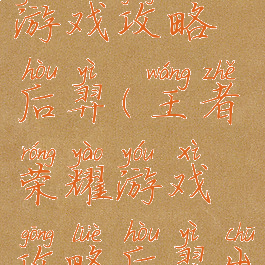 游戏攻略
hòu yì wáng zhě
后羿(王者
róng yào yóu xì
荣耀游戏
gōng lüè hòu yì chū
攻略后羿出